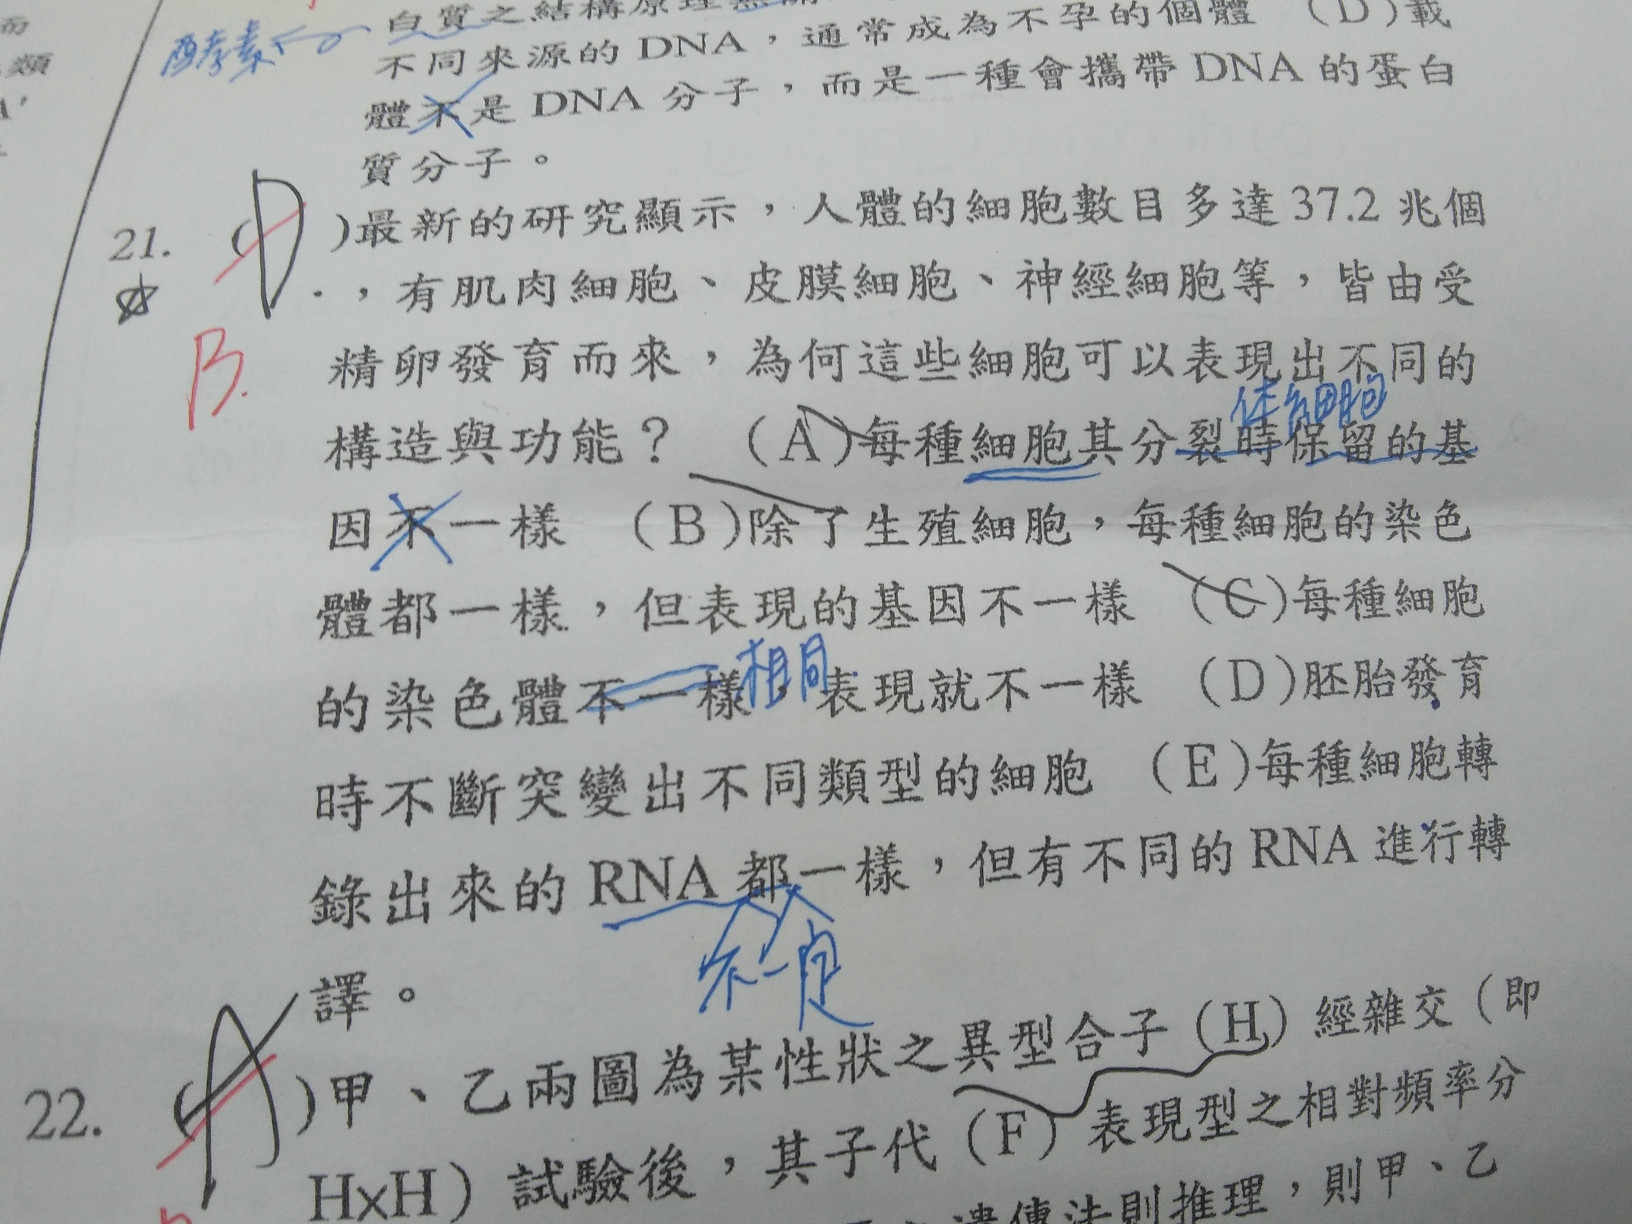 自質之結構原理無關
酵素
不同來源的DNA，通常成為不孕的個體 (D)載
體不是DNA分子，而是一種會攜帶DNA的蛋白
質分子。
21. (D)最新的研究顯示，人體的細胞數目多達37.2兆個
☆
，有肌肉細胞、皮膜細胞、神經細胞等，皆由受
B.
精卵發育而來，為何這些細胞可以表現出不同的
体細胞
構造與功能？ (A)每種細胞其分裂時保留的基
因不一樣 (B)除了生殖細胞，每種細胞的染色
體都一樣，但表現的基因不一樣 (C)每種細胞
相同
的染色體不一樣，表現就不一樣 (D)胚胎發育
時不斷突變出不同類型的細胞 (E)每種細胞轉
錄出來的RNA都一樣，但有不同的RNA進行轉
不一定
譯。
22. (A)甲、乙兩圖為某性狀之異型合子(H)經雜交(即
HxH)試驗後，其子代(F)表現型之相對頻率分
遺傳法則推理，則甲、乙